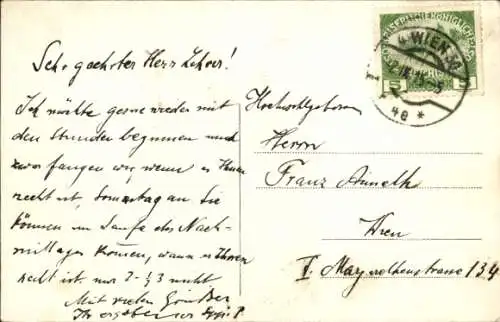 Sehr geehrter Herr Lehrer!
Ich möchte gerne wieder mit
den Stunden beginnen und
zwar fangen wir, wenn es Ihnen
recht ist, Samstag an. Sie
können im Laufe des Nach-
mittages kommen, wann es Ihnen
recht ist. nur 2-½3 nicht
Mit vielen Grüßen
Ihr ergebener
Hochwohlgeboren
Herrn
Franz
Wien
V. Margarethenstrasse 134
KAISERLICHE KÖNIGLICHE
WIEN
4e *
5